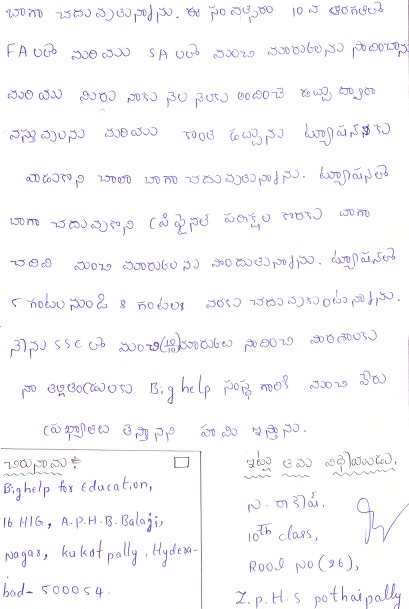 బాగా చదువుతున్నాను. ఈ సంవత్సరం 10 వ తరగతిలో
FA లలో మరియు SA లలో మంచి మార్కులను సాధించాను
మరియు మీరు నాకు నెల నెలకు అందించె డబ్బు ద్వారా
వస్తువులను మరియు కొంత డబ్బును ట్యూషన్‌కు
వాడుకొని చాలా బాగా చదువుతున్నాను. ట్యూషన్‌లో
బాగా చదువుకొని ప్రి ఫైనల్ పరీక్షల కొరకు బాగా
చదివి మంచి మార్కులను పొందుతున్నాను. ట్యూషన్‌లో
5 గంటల నుండి 8 గంటల వరకు చదువుకుంటున్నాను.
నేను SSC లో మంచి (10/10) మార్కులు సాధించి మా
నా తల్లితండ్రులకు Bighelp సంస్థ గారికి మంచి పేరు
ప్రఖ్యాతలు తెస్తానని హామి ఇస్తాను.
చిరునామ :
Bighelp for Education,
16 HIG, A.P.H.B. Balaji,
Nagar, kukatpally, Hydera-
bad- 500054.
ఇట్లు తమ విధేయుడు,
న. రాకేష్.
10th class,
Rool NO (26),
Z.P.H.S pothaipally